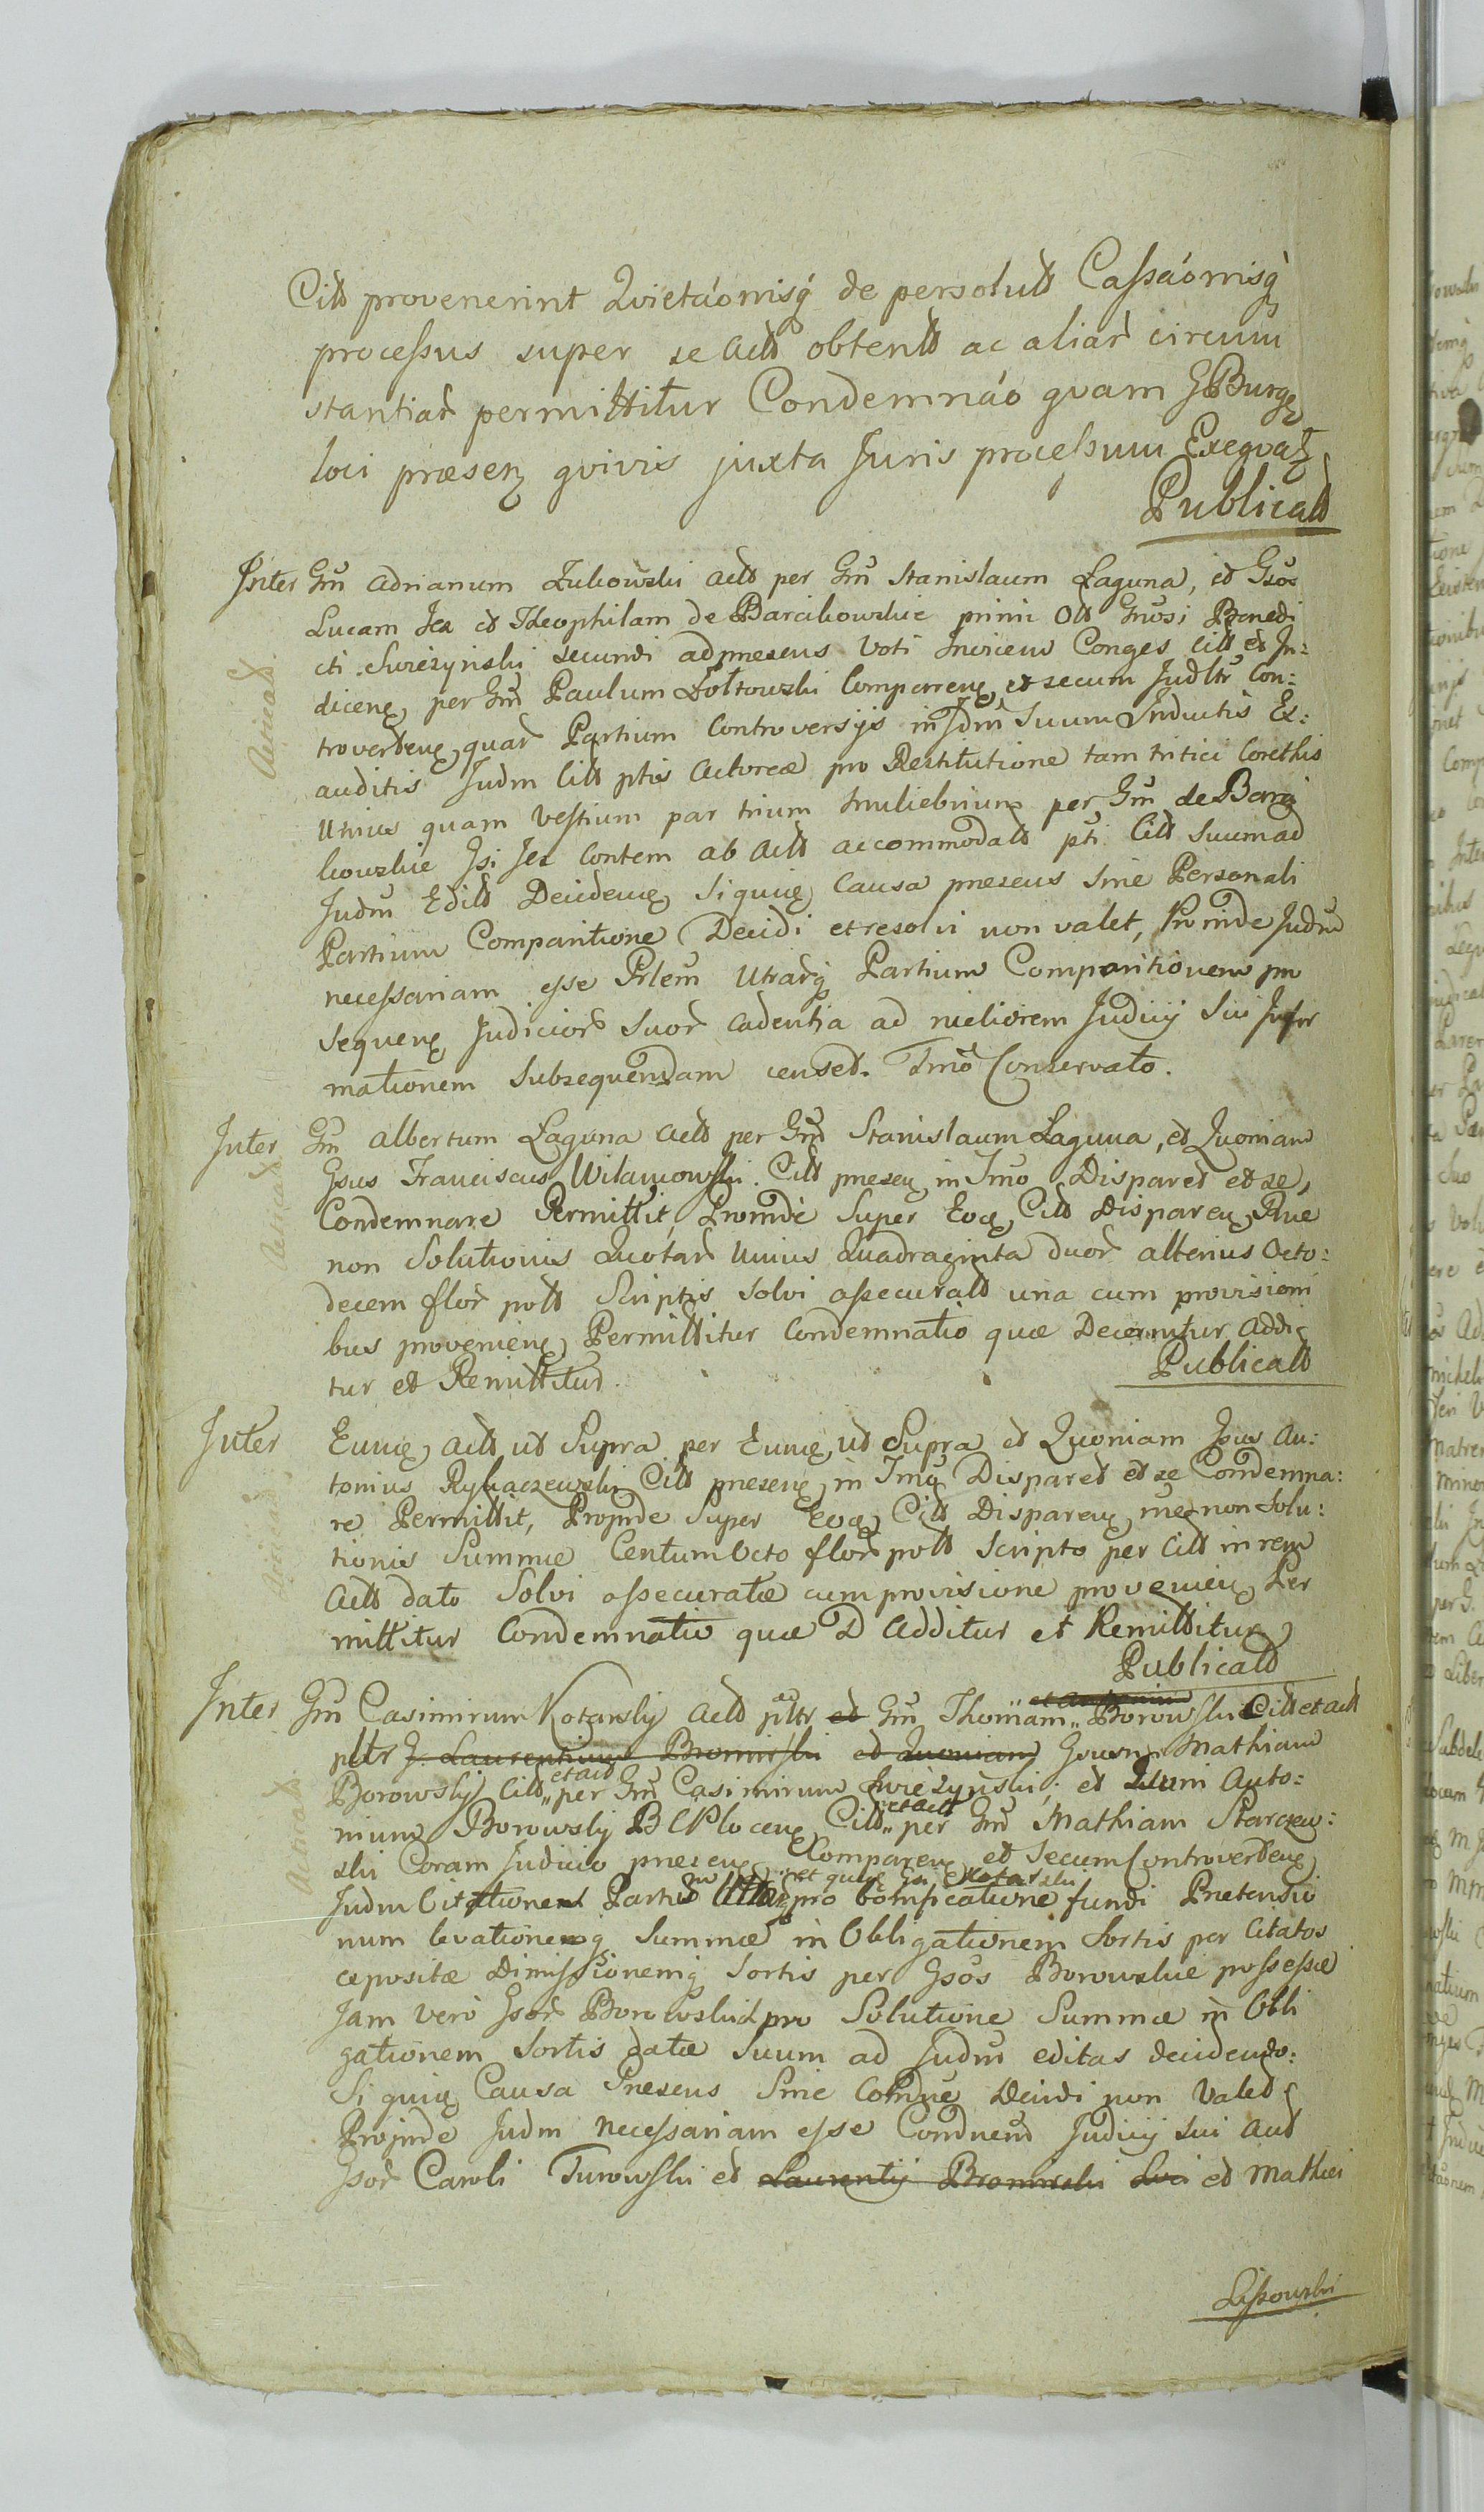 Citt provenerint Qvietáomisq́ de persolutt Cassáomisq́
processus super se Actt obtentt ac aliar̃ circum
stantiar̃ permittitur Condemnáo qvam G Burge
loci præsen qvivis juxta Juris processum Exeqvat
Publicatt
Inter Gm̃ Adrianum Żukowski Actt per Gm̃ Stanislaum Laguna, et Gsos
Lucam Jez et Theophilam de Barcikowskie primi Ott Gnosi Benedi
cti Swiezynski secundi ad presens Voti Conges Citt et In:
dicen per Gm̃ Paulum Żoltowski Comparen et secum Judltr Con:
troverten quar̃ Partium Controversijs in Jdm̃ Suum Inductis Ex:
auditis Judm Citt ptis Actoreæ pro Restitutione tam tritici Corethis
Unius quam Vestium par trium muliebrium per Gm̃ de Barci
kowskie Jsi Jez Contem ab Actt accommodatt pti Citt Suum ad
Judm̃ Editt Deciden Siquie Causa presens Sine Personali
Partium Comparitione Decidi et resolvi non valet, Proinde Judm̃
necessariam esse Prlem̃ Utrarq́ Partium Comparitionem pro
Sequen Judicior̃ Suor̃ Cadentia ad meliorem Judicij Sui Infor
mationem Subsequendam censet. Tmo Conservato.
Inter Gm̃ Albertum Laguna Actt per Gm̃ Stanislaum Laguna, et Quoniam
Gsus Franciscus Wilamowski Citt presen in Tmo Disparet et se
Condemnare Permittit, Proinde Super Eoę Citt Disparen Rne
non Solutionis Quotar̃ Unius Quadraginta duor̃ alterius Octo:
decem flor̃ poltt Scriptis Solvi assecuratt una cum provisioni
bus provenien Permittitur Condemnatio quæ Decernitur Addi
tur et Remittitur.
Publicatt
Inter Eumę Actt ut Supra per Eumę ut Supra et Quoniam Gsus An:
tonius Rybaczewski Citt presen in Tmo Disparet et se Condemna:
re Permittit, Projnde Super Eoę Citt Disparen rne non Solu:
tionis Summæ Centum Octo flor̃ poltt Scripto per Citt in rem
Actt dato Solvi assecuratæ cum provisione provenien Per
mittitur Condemnatio quæ D Additur et Remittitur
Publicatt
Inter Gm̃ Casimirum Kotarsky Actt pltr et Gm̃ Thomam Borowski Citt et Actt
pltr G. Laurentium Bromirski et Quoniam Mathiam
Borowsky Citt et Actt per Gm̃ Casimirum Swiezynski, et Antoni:
nium Borowsky B C Plocen Citt et Actt per Gm̃ Mathiam Starczew:
ski Coram Judicio presen Comparen et Secum Controverten
Judm Citationem Partis pro bonificatione fundi Pretensio
num levationemq́ Summæ in Obligationem Sortis per Citatos
Dimissionemq́ Sortis per Gsos Borowskie possessæ
Jam vero Gsor̃ Borowskich pro Solutione Summæ in Obli
gationem Sortis datæ Suum ad Judm̃ editas decidendo:
Siquie Causa Presens Sine Condne Decidi non Valet
Projnde Judm necessariam esse Condnem Judicij Sui Aut
Gsor̃ Caroli Turowski et Laurentij Bromirski et Mathiæ
Lissowski
Acticatt.
Acticatt
Acticatt
Acticatt.